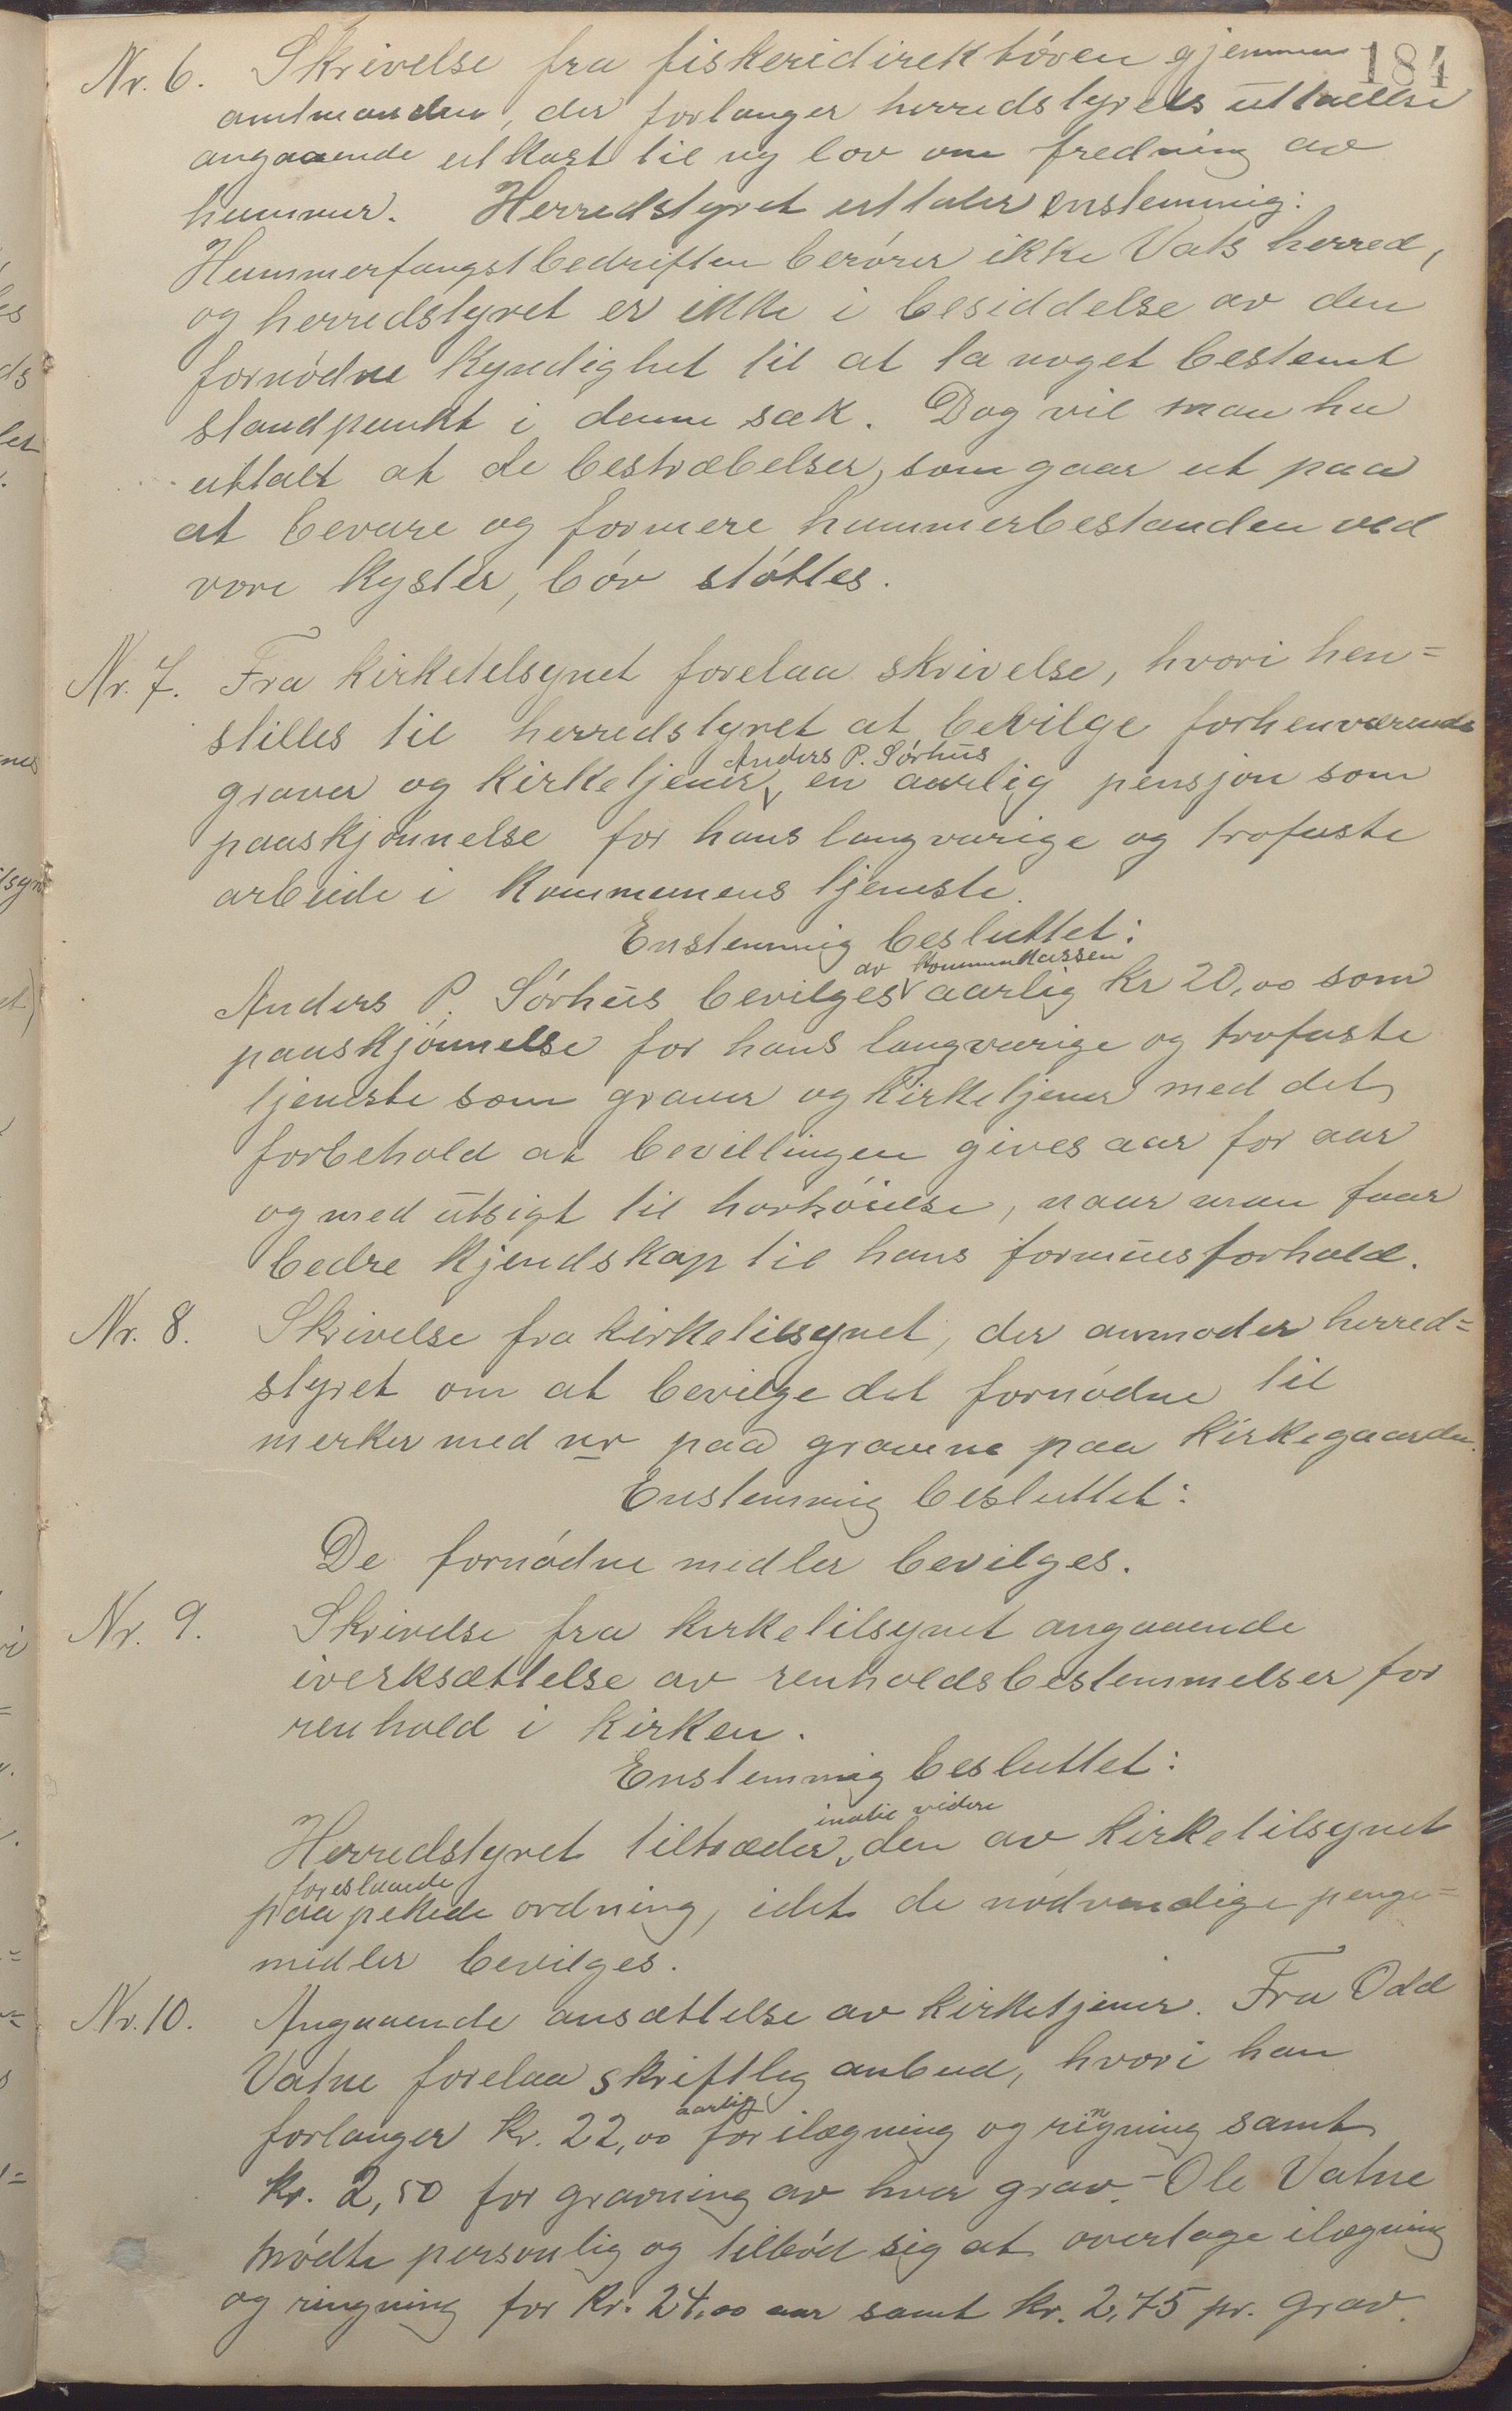 184
Nr. 6. Skrivelse fra fiskeridirektøren gjennem
amtmanden, der forlanger herredstyrets uttallelse
angaaende utkast til ny lov om fredning av
hummer. Herredstyret uttaler enstemmig:
Hummerfangstbedriften berører ikke Vats herred,
og herredstyret er ikke i besiddelse av den
fornødne kyndighet til at ta noget bestemt
standpunkt i denne sak. Dog vil man ha
uttalt at de bestræbelser, som gaar ut paa
at bevare og formere hummerbestanden ved
vore kyster, bør støttes.
Nr. 7. Fra kirketilsynet forelaa skrivelse, hvori hen=
stilles til herredstyret at bevilge forhenværende
Anders P. Sørhus
graver og kirketjener, en aarlig pensjon som
paaskjønnelse for hans langvarige og trofaste
arbeide i kommunens tjeneste.
Enstemmig besluttet:
av kommunkassen
Anders P. Sørhus bevilges aarlig kr 20,00 som
paaskjønnelse for hans langvarige og trofaste
tjeneste som graver og kirketjener med det
forbehold at bevillingen gives aar for aar
og med utsigt til forhøielse, naar man faar
bedre kjendskap til hans formuesforhold.
Nr. 8. Skrivelse fra kirketilsynet, der anmoder herred=
styret om at bevilge det fornødne til
merker med nr paa gravene paa kirkegaarden.
Enstemmig besluttet:
De fornødne midler bevilges.
Nr. 9. Skrivelse fra kirketilsynet angaaende
iverksættelse av renholdsbestemmelser for
renhold i kirken.
Enstemmig besluttet:
indtil videre
Herredstyret tiltræder, den av kirketilsynet
foreslaaede
paapekede ordning, idet de nødvendige penge=
midler bevilges.
Nr. 10. Angaaende ansættelse av kirketjener. Fra Odd
Vatne forelaa skriftlig anbud, hvori han
aarlig
forlanger kr. 22,00 for ilægning og ringning samt
kr. 2,50 for gravning av hver grav. – Ole Vatne
mødte personlig og tilbød sig at overtage ilægning
og ringning for kr. 24,00 aar samt kr. 2,75 pr. grav.